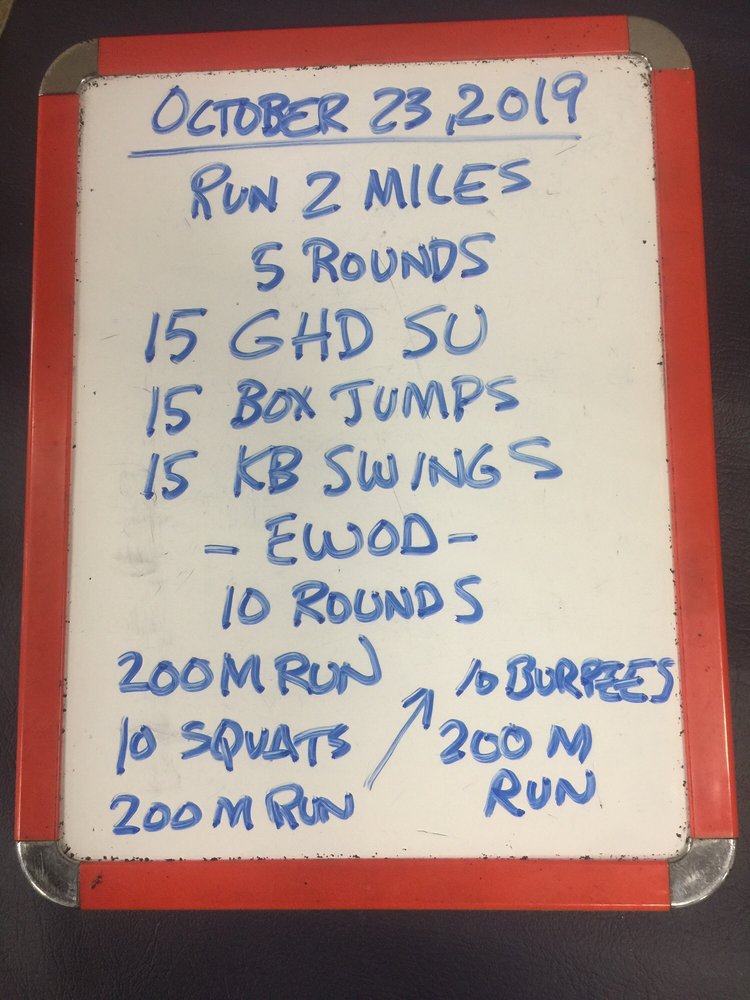 OCTOBER 23, 2019
RUN 2 MILES
5 ROUNDS
15 GHD SU
15 BOX JUMPS
15 KB SWINGS
- EWOD -
10 ROUNDS
200 M RUN
10 SQUATS
200 M RUN
10 BURPEES
200 M
RUN